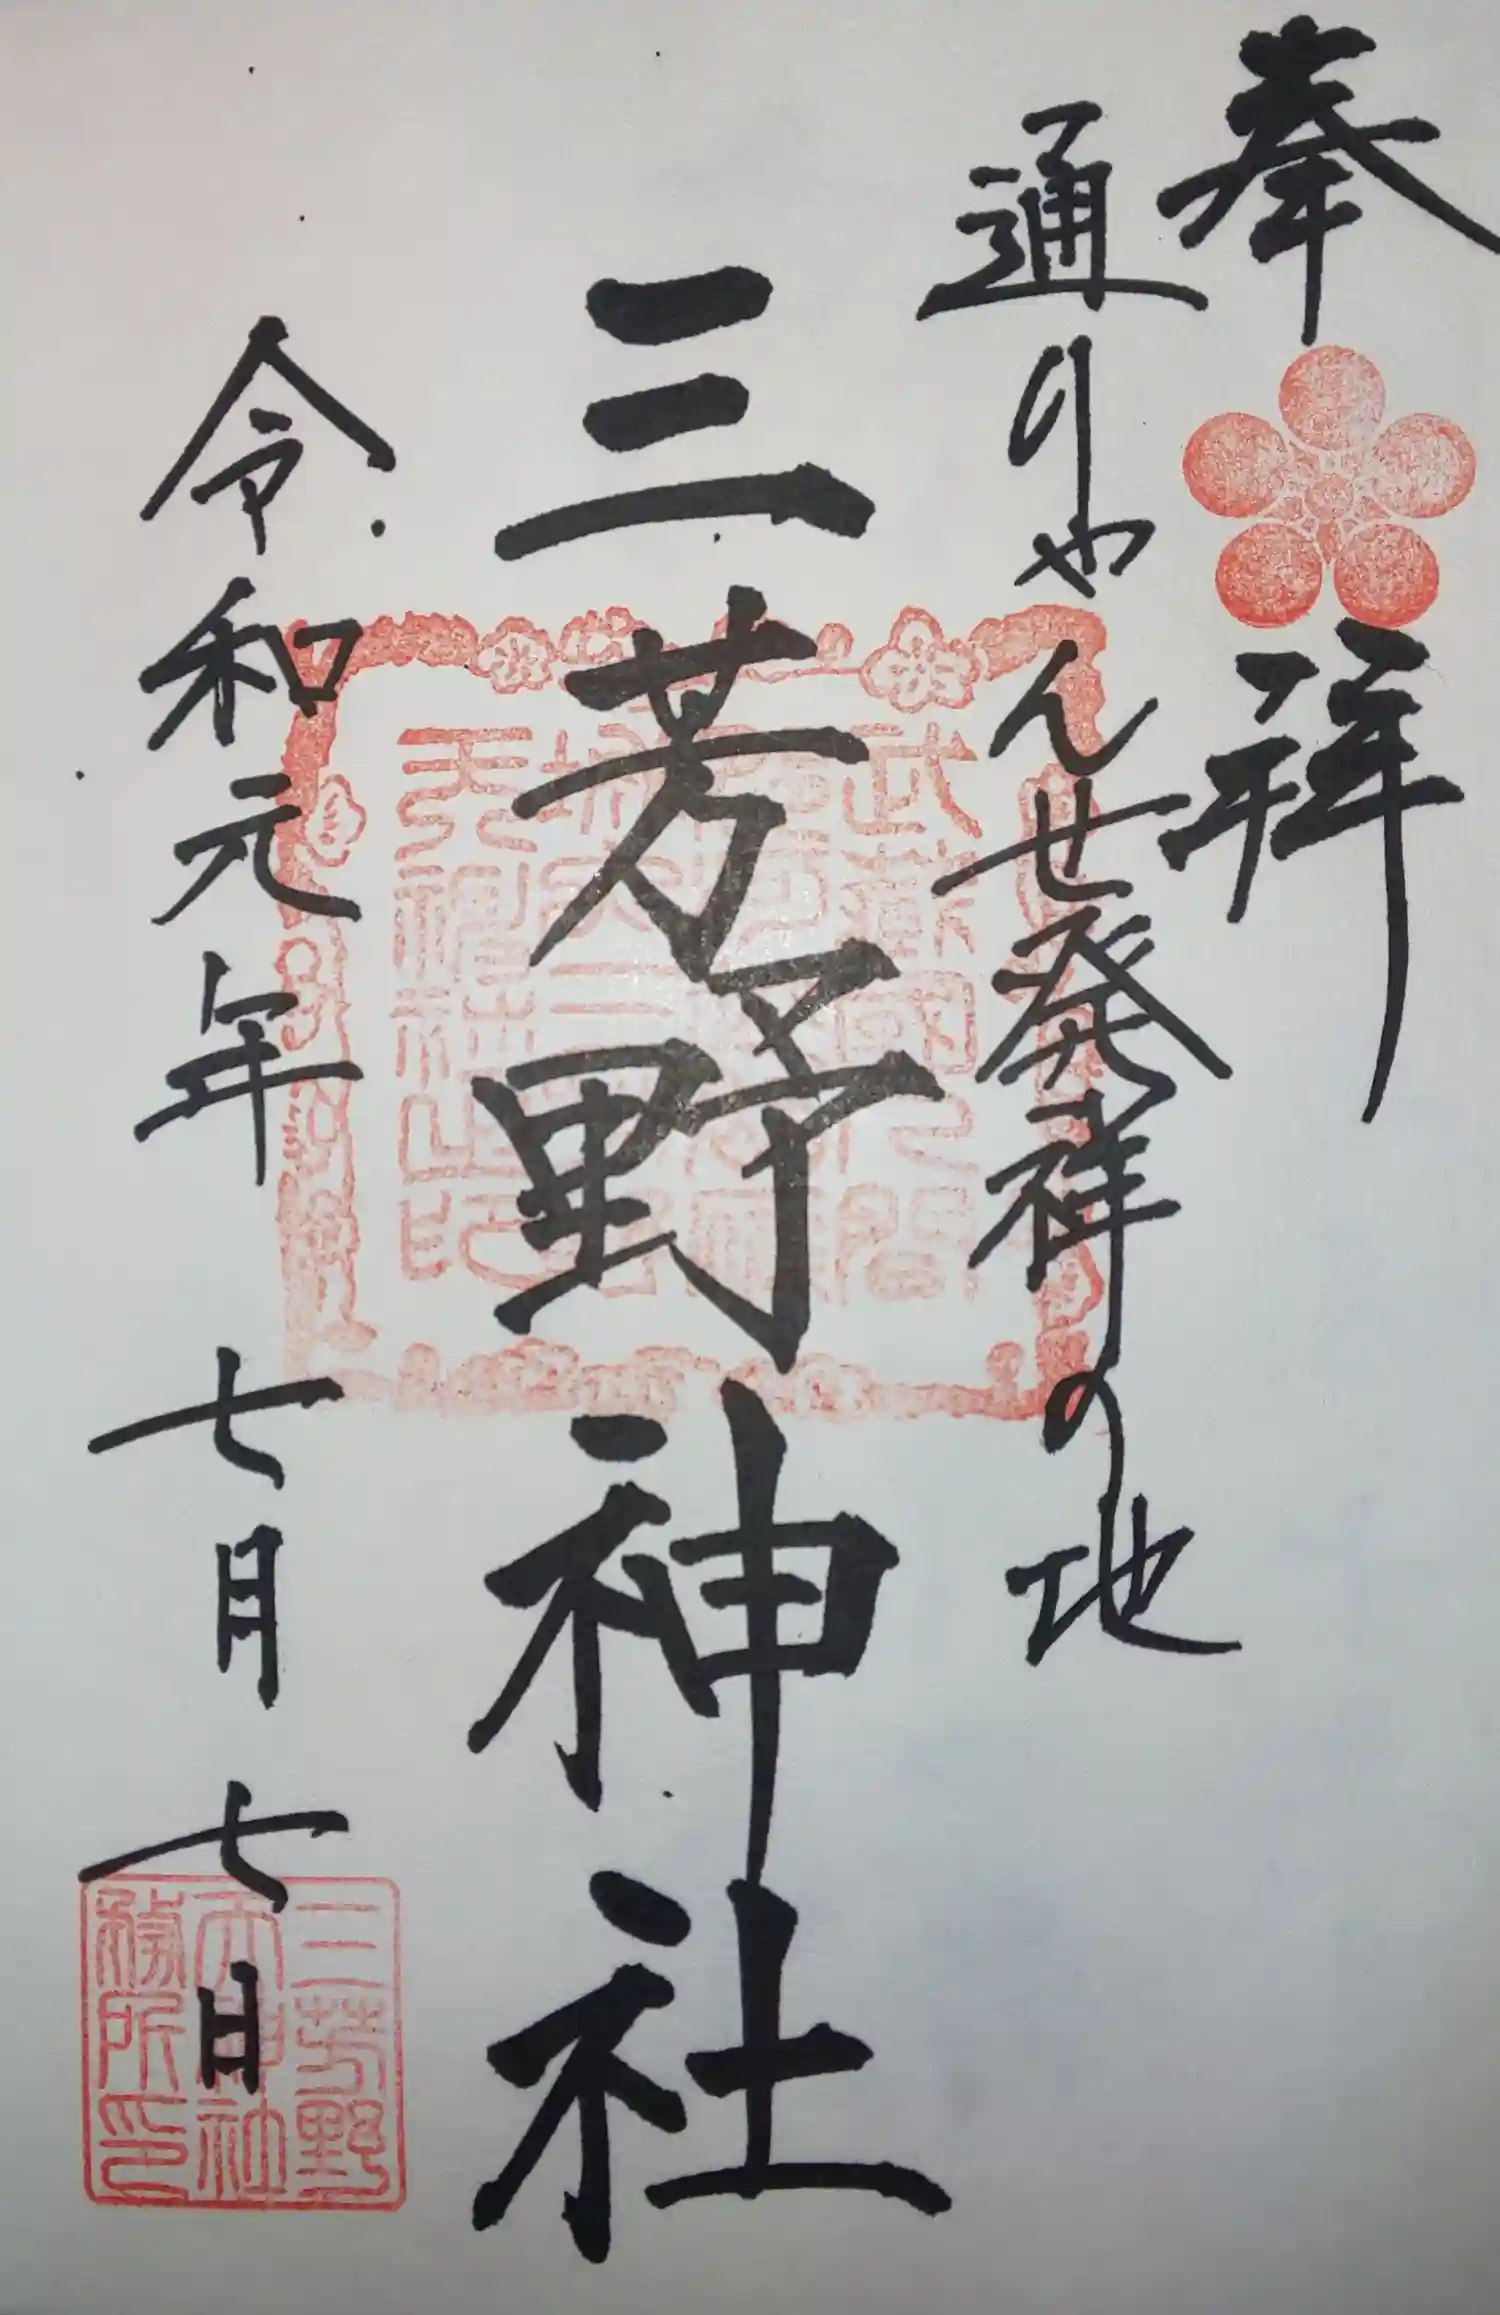 奉拝
通りゃんせ発祥の地
三芳野神社
令和元年七月七日
三芳野
天神社
務所印